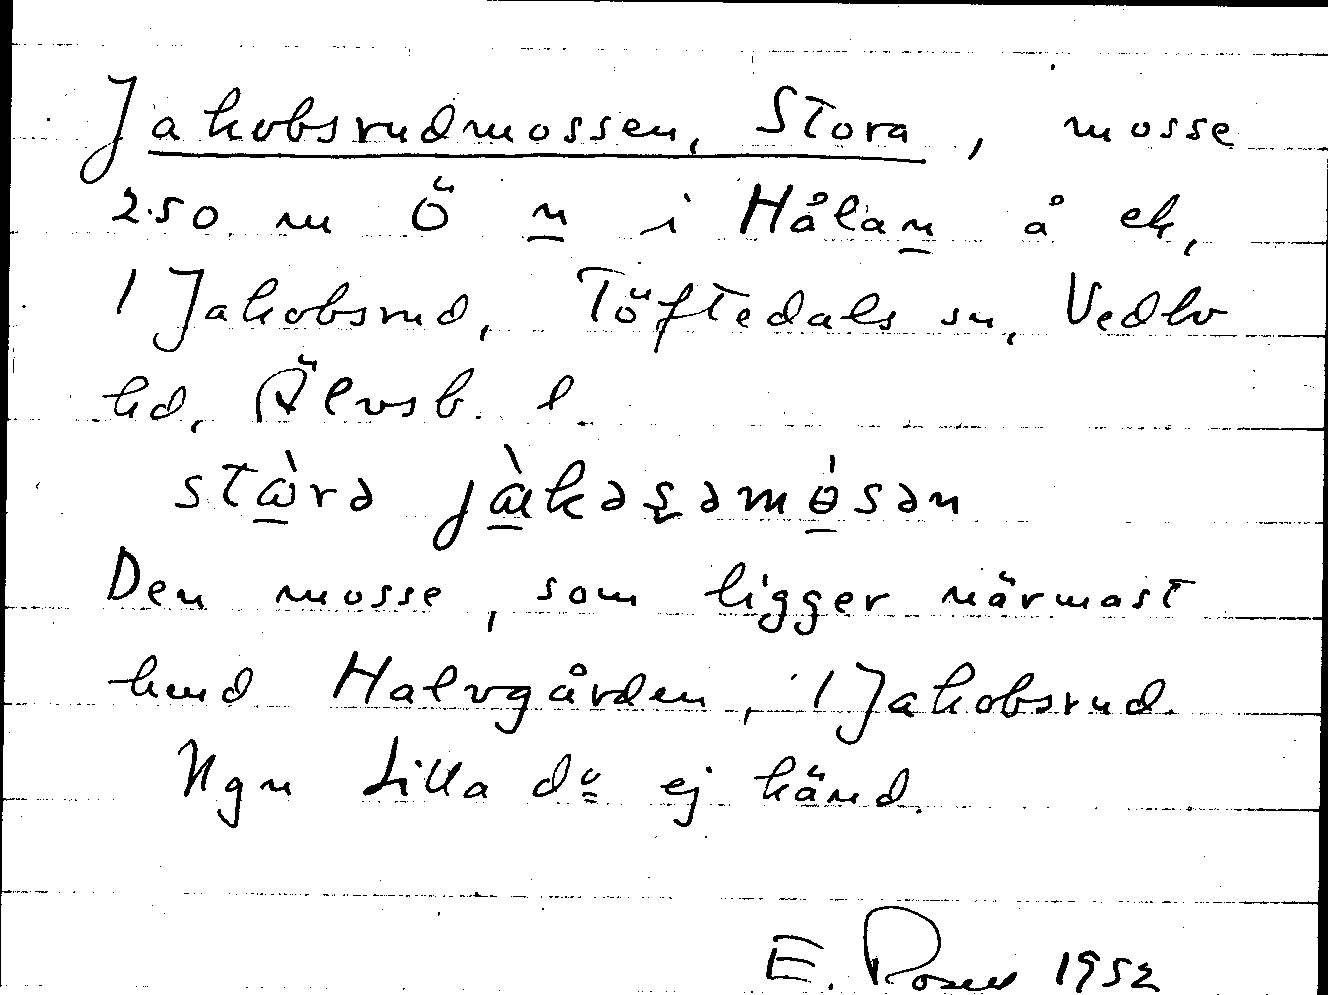 Jakobsrudmossen, Stora, mosse
250 m Ö n i Hålan å ek,
1 Jakobsrud, Töftedals sn, Vedbo
hd, Älvsb. l.
Den mosse, som ligger närmast
kend Halvgården, 1 Jakobsrud.
Ngn Lilla do ej känd.
E. Rosen 1952